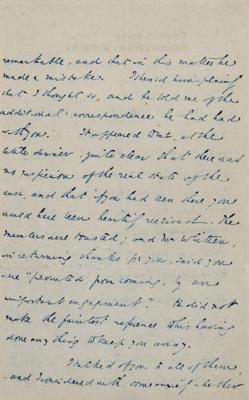 remarkable, and that in this matter he
made a mistake. I showed him plainly
that I thought so, and he told me of the
additional correspondence he had had
with you. It happened that, at the
little dinner, quite clear that there was
no suspicion of the real state of the
case, and that if you had been there you
would have been heartily received. The
members were toasted; and Mr Whitten,
in returning thanks for you, said you
were "prevented from coming, by an
important engagement". He did not
make the faintest reference to his having
done anything to keep you away.
I talked of you to all of them,
and I considered with some one if whether